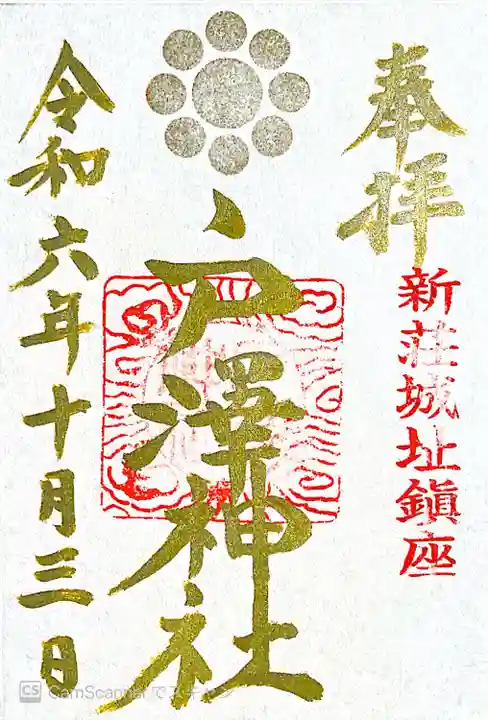 奉拝
新荘城址鎮座
戸澤神社
令和六年十月三日
CS CamScanner でスキャン